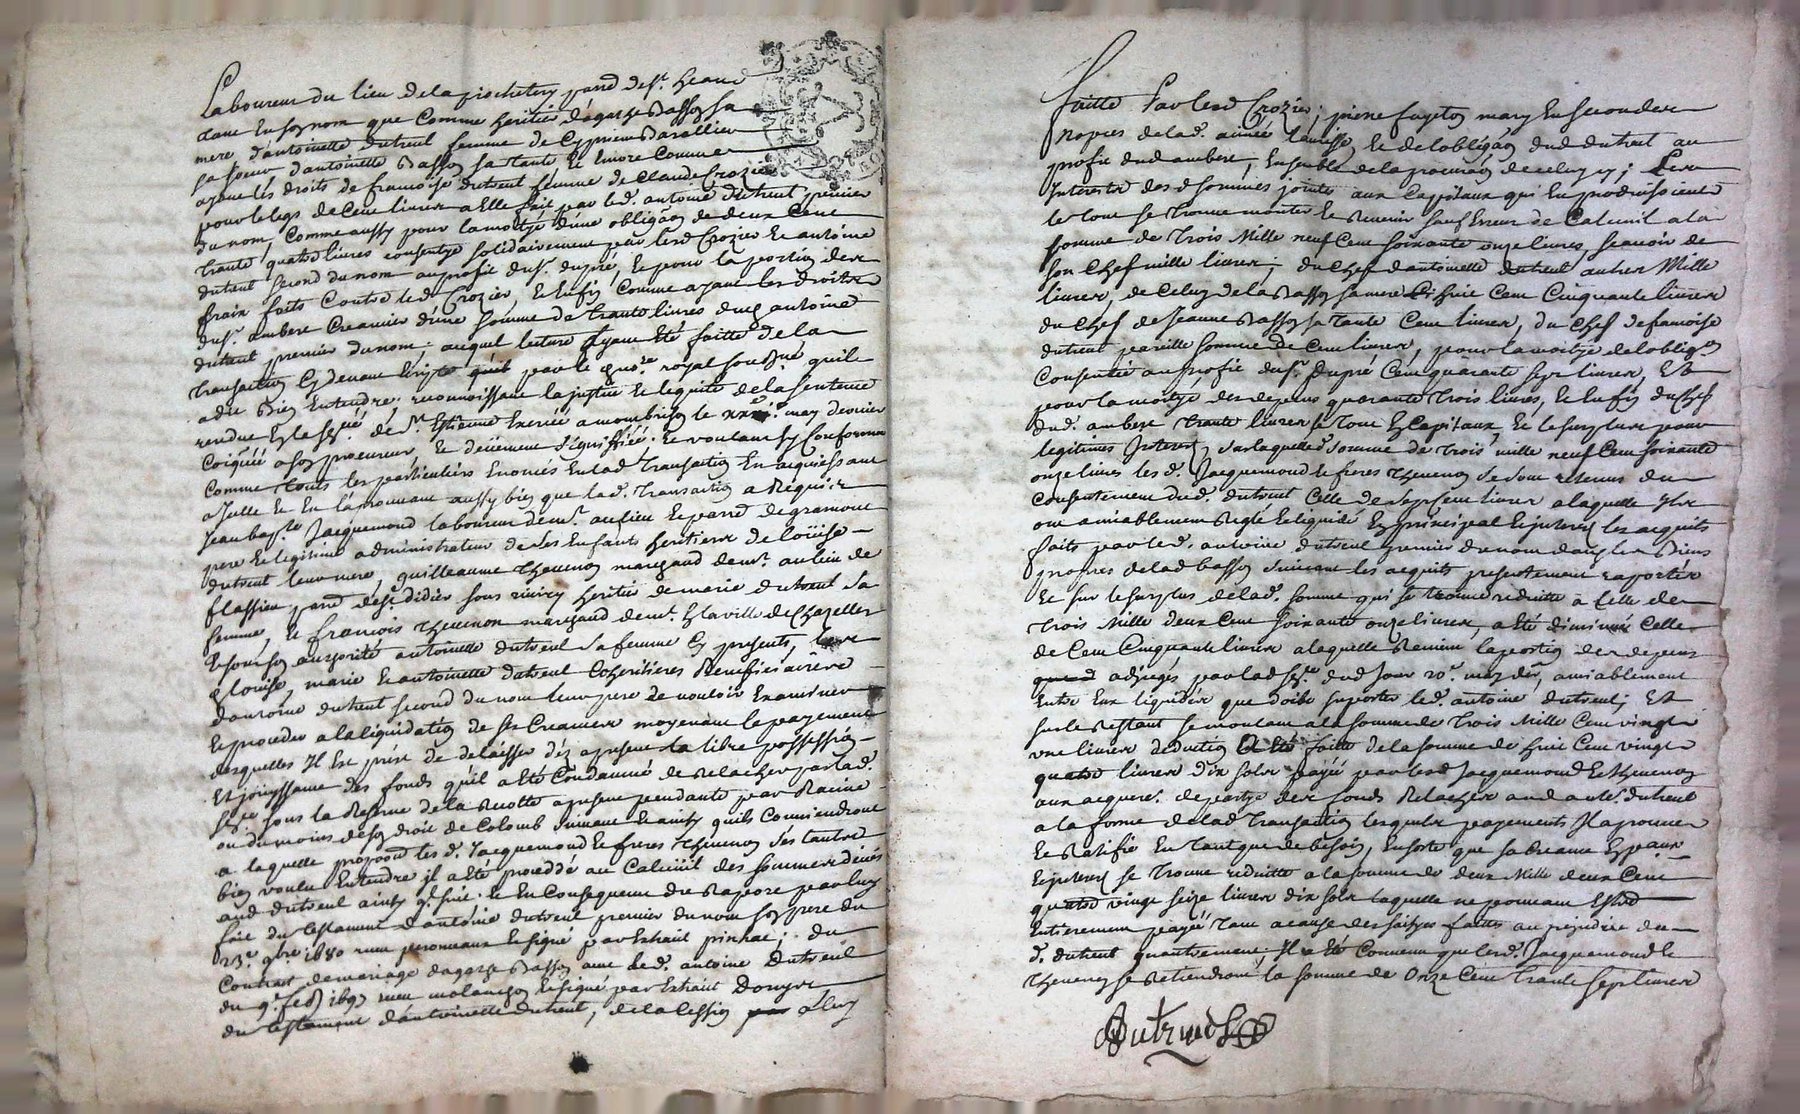 Laboureur du lieu de la parr.d de s.t heand
tant en son nom que comme heritier d'agathe Basson sa
mere d'antoinette dutreul femme de Cyprien Barallier
sa soeur d'antoinette Basson sa tante Et Encore Comme
ayant les droits de francoise dutreul femme de Claude Crozier
pour le legs de Cent livres a Elle fait par led. antoine dutreul premier
du nom, Comme aussy pour la moitye d'une obliga.on de deux Cent
trante quatre livres consentye solidairement par lesd Crozier Et antoine
dutreul second du nom au profit du s.r dupré, Et pour la portion des
frais faits Contre led. Crozier, Et Enfin Comme ayant les droits
du s.r ambert Creancier d'une somme de trante livres dud antoine
dutreul premier du nom; auquel lecture ayant Eté faitte de la
transaction Cy devant par le no.re royal sousg.né quil
a dit Bien Entendre; reconnoissant la justice Et lequité de la sentence
rendue En la de M.r Estienne a montbrison le may dernier
a son procureur, Et deüement signiffiée. Et voulant sy Conformer
Comme touts les particuliers Enoncés En lad. transaction En acquiessant
a Jcelle Et En laprouvant aussy bien que lad. transaction a Requis
Jean bap.te Jacquemond laboureur dem.t au lieu Et parr.d de gramont
pere Et legitime administrateur de ses Enfants heritiers de loüise
dutreul leur mere, guilleaume thevenon marchand dem.t au lieu de
flassieu parr.d de s.t didier sous riviry heritier de marie dutreul sa
femme, Et francois thevenon marchand dem.t En la ville de Chazelles
Et sous son authorité antoinette dutreul sa femme Cy presents,
louise, marie Et antoinette dutreul Coheritieres Beneficiaires
d'antoine dutreul second du nom leur pere de vouloir Examiner
Et proceder a la liquidation de ses Creances moyenant le payement
desquelles Jl Est prest de delaisser dez apresent la libre possession
Et jouyssance des fonds quil a Eté Condamné de Relacher par lad.
sous la Reserve de la Recolte apresent pendante par Racine
ou du moins de son droit de Colomb suivant Et ainsy quils Conviendront
a laquelle led.s Jacquemond Et freres thevenon s'estant
bien voulu Entendre jl a Eté proceddé au Calcuil des sommes deües
aud dutreul ainsy q.l suit. Et En Consequence du Raport par luy
fait du testament d'antoine dutreul premier du nom son pere du
23.e 9bre 1680 reçu Et signé par Extrait pinhac; du
Contrat de mariage d'agathe Basson avec led. antoine dutreul
du 9.e 169 receu Et signé par Extrait Donyer
du testament d'antoinette dutreul, de la Cession a luy
faitte Par lesd Crozier; pierre fayeton mary En secondes
nopces de lad. aimée, Et de l'obliga.on dud dutreul au
profit dud ambert, Ensemble de la procura.on de celuy cy; Les
Jnterests des d sommes joints aux Cappitaux qui En produisoient
le tout se trouve monter Et Revenir sauf Erreur de Calcuil a la
somme de trois Mille neuf Cent soixante onze livres, scavoir de
son Chef mille livres; du Chef d'antoinette dutreul autres Mille
livres, de Celuy de la Basson sa mere huit Cent Cinquante livres
du Chef de Jeanne Basson sa tante Cent livres, du Chef de francoise
dutreul pareille somme de Cent livres, pour la moitye de l'oblig.on
Consentie au profit du s.r Dupré Cent quarante sept livres, Et
pour la moitye des depens quarante trois livres, Et Enfin du Chef
dud. ambert trante livres le tout En Capitaux, Et le surplus pour
legitimes Jnterests, sur laquelle somme de trois mille neuf Cent soixante
onze livres les d. Jacquemond Et freres thevenon se sont retenus du
Consentement dud. dutreul Celle de sept Cent livres a laquelle Jls
ont amiablement Reglé Et liquidé En principal Et jnterests les acquits
faits par led. antoine dutreul premier du nom dans les Biens
propres de lad basson suivant les acquits presentement raportés
Et sur le surplus de lad. somme qui se trouve reduitte a Celle de
trois Mille deux Cent soixante onze livres, a Eté diminué Celle
de Cent Cinquante livres a laquelle Revient la portion des depens
adjugés par lad dud Jour 20.e may d.er, amiablement
Entre Eux liquidés que doibt suporter led. antoine dutreul; Et
sur le Restant se montant a la somme de trois Mille Cent vingt
une livres deduction a Eté faitte de la somme de huit Cent vingt
quatre livres dix sols payée par lesd Jacquemond Et thevenon
aux acquere.s de partye des fonds Relachés aud ant.e dutreul
a la forme de lad transaction lesquels payements Jl aprouve
Et Ratifie En tant que de besoin, En sorte que sa Creance En
Et jnterests se trouve reduitte a la somme de deux Mille deux Cent
quatre vingt seize livres dix sols laquelle ne pouvant Estre
Entierement payée tant a cause des saisyes faittes au prejudice du
d. dutreul qu'autrement, Jl a Eté Convenu que lesd. Jacquemond Et
thevenon se Retiendront la somme de Onze Cent trante sept livres
Dutreul